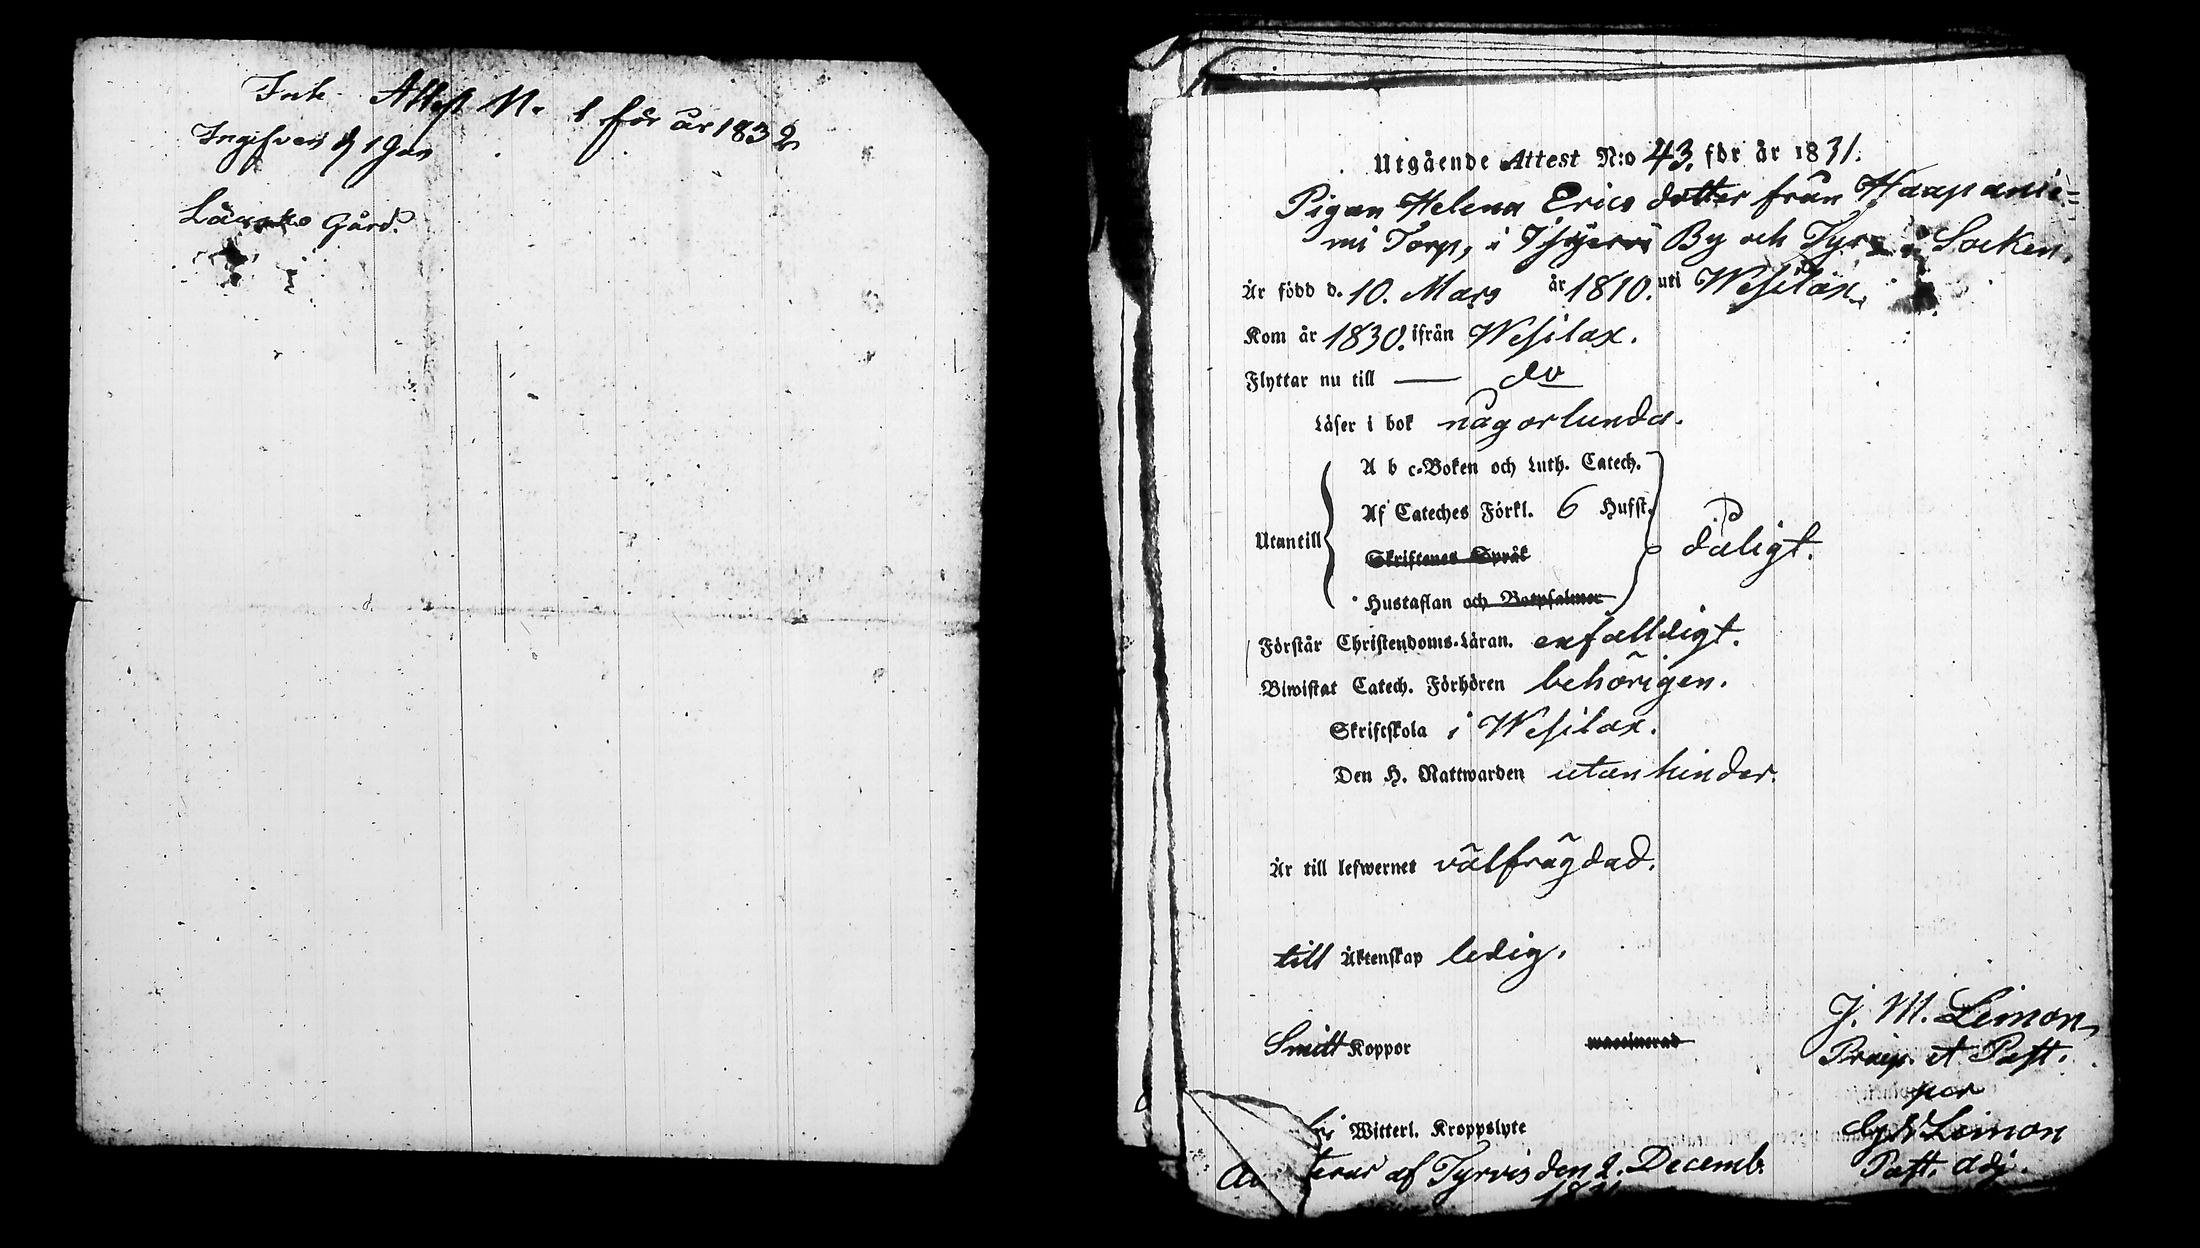 Ink. Attest N. 1 för år 1832
Gård.
Utgående Attest N:o 43. för år 1831.
Pigan Helena Erics dotter från Haapanie=
mi Torp, i By och Tyrvis Socken.
Är född d. 10. Mars år 1810. uti Wesilax.
Kom år 1830. ifrån Wesilax.
Flyttar nu till — do
Läser i bok någorlunda.
A b c-Boken och Luth. Catech.
Af Cateches Förkl. 6 Hufst.
Utantill
dåligt.
Skriftenes Språk
Hustaflan och Botpsalmer
Förstår Christendoms-Läran. enfalldigt.
Biwistat Catech. Förhören behörigen.
Skriftskola i Wesilax.
Den H. Nattwarden utan hinder.
Är till lefwernet välfrägdad.
till Äktenskap ledig.
J. M. Limon
Smitt Koppor waccinerad
Praep. et Past.
per
Witterl. Kroppslyte
Limon
terar af Tyrvis den 2. Decemb.
Past. adj.
1831